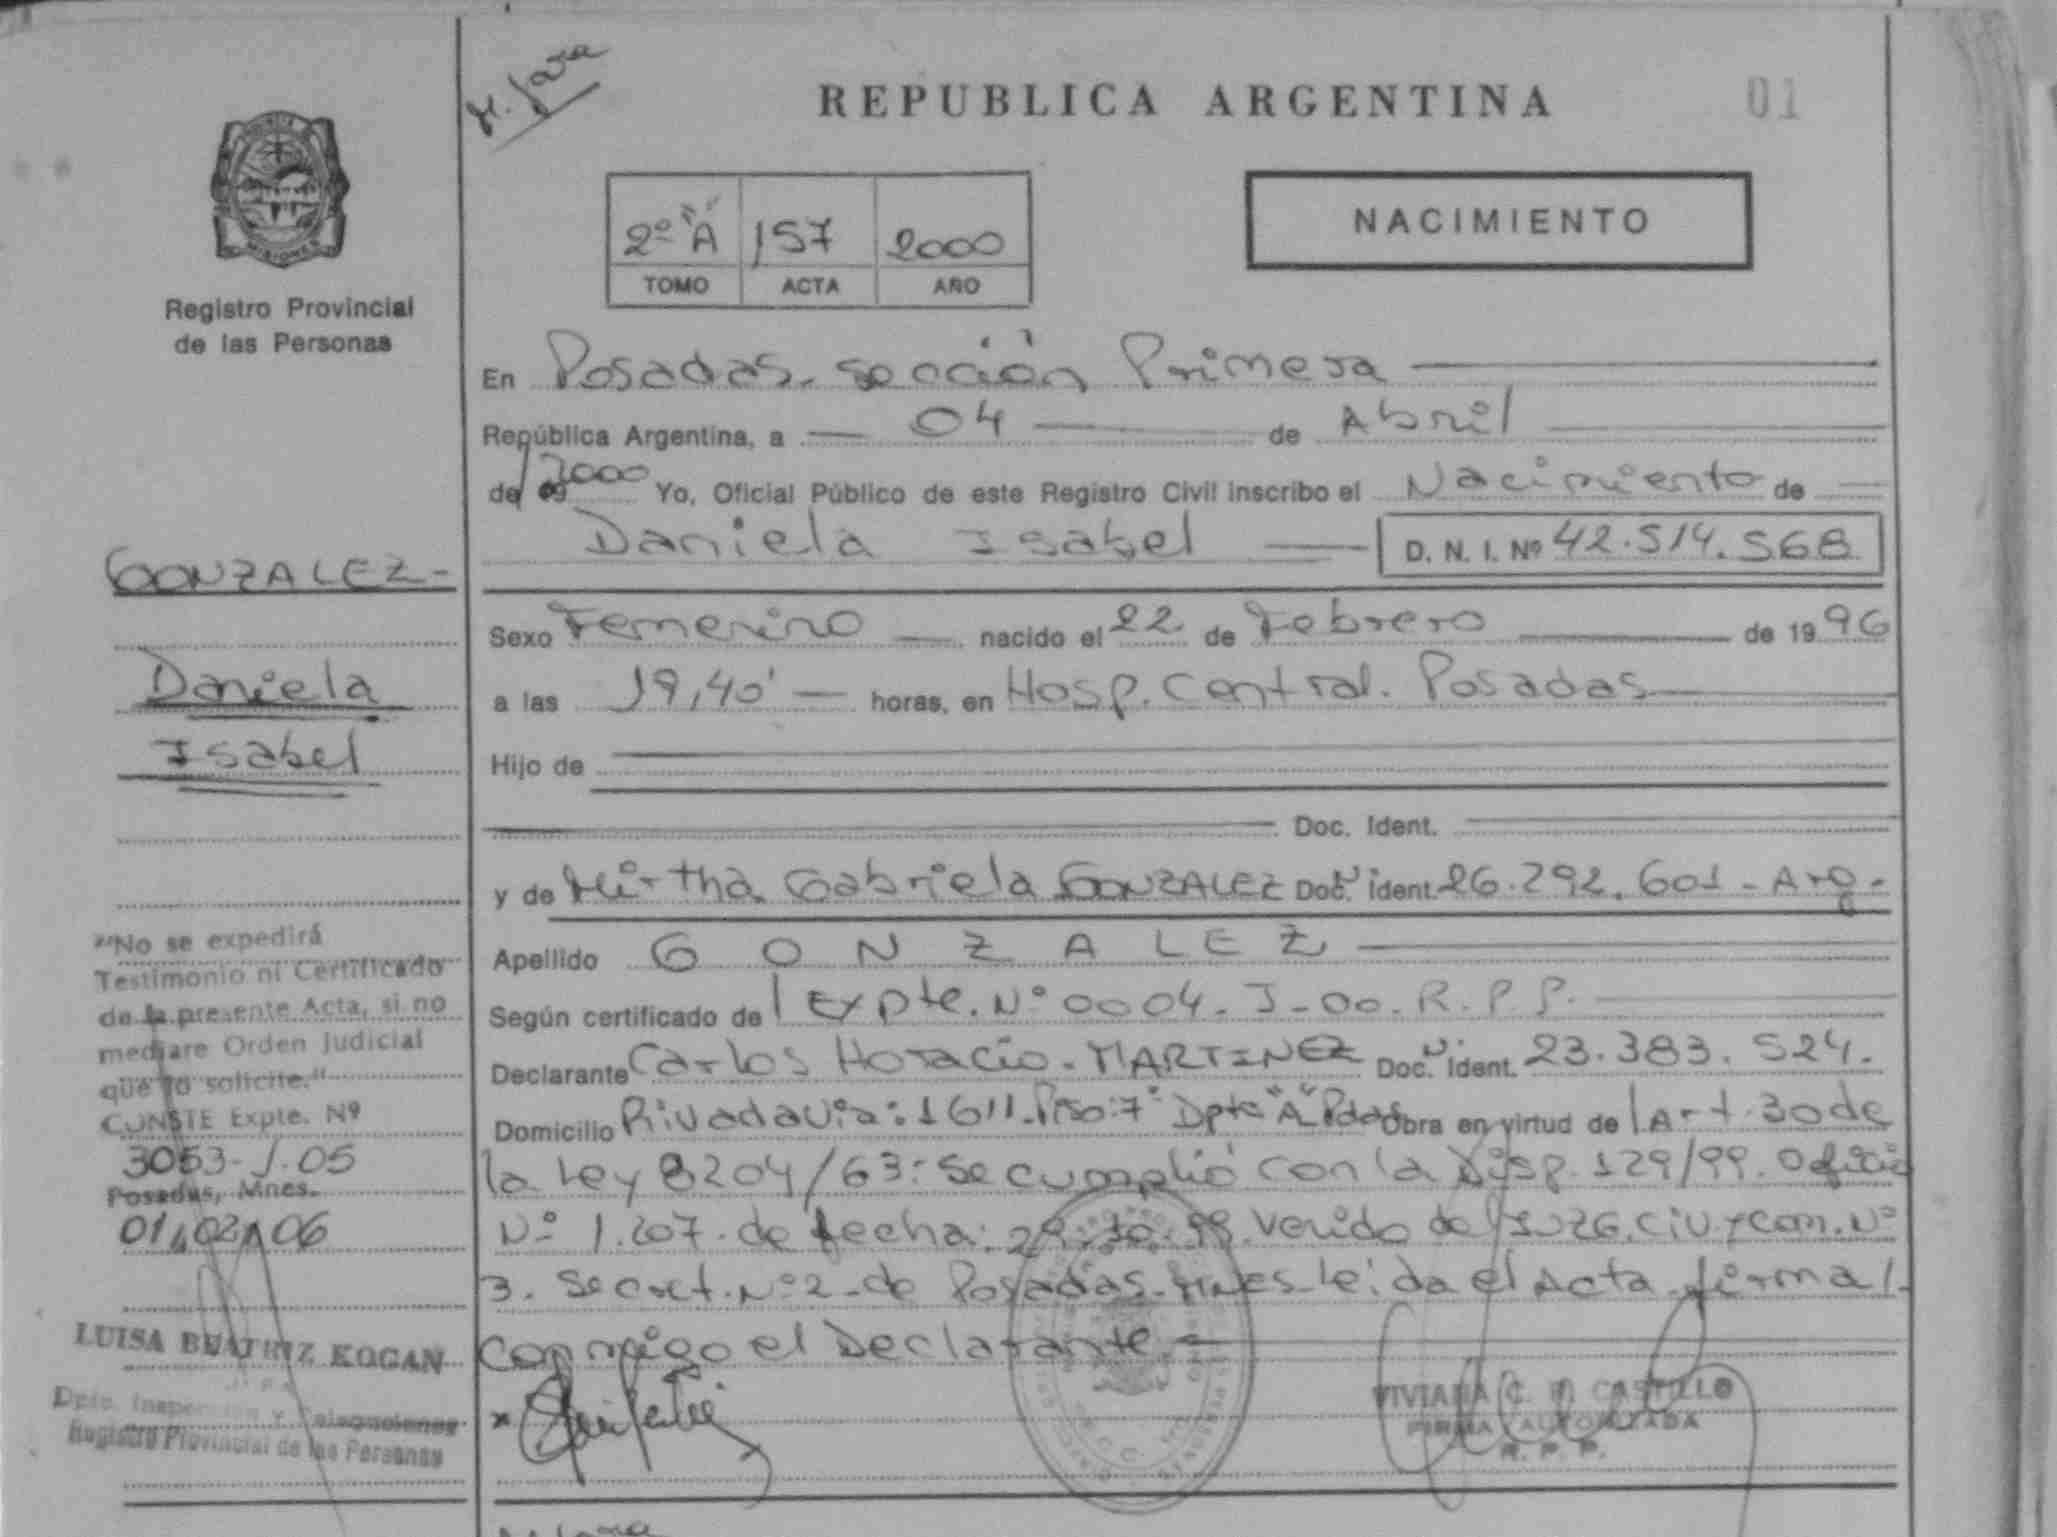 H. Jara
REPUBLICA ARGENTINA
01
MISIONES
Registro Provincial
de las Personas
2º "A" 157 2000
TOMO ACTA AÑO
NACIMIENTO
En Posadas. sección Primera
República Argentina, a 04 de Abril
de 2000 Yo, Oficial Público de este Registro Civil inscribo el Nacimiento de
Daniela Isabel D. N. I. Nº 42.514.568
Sexo Femenino nacido el 22 de Febrero de 1996
a las 19,40' horas, en Hosp. Central. Posadas
Hijo de
Doc. Ident.
y de Mirtha Gabriela GONZALEZ Doc. Ident. 26.292.601 - Arg.
Apellido GONZALEZ
Según certificado de / Expte. Nº 0004. J-00. R.P.P.
Declarante Carlos Horacio. MARTINEZ Doc. Ident. 23.383.524.
Domicilio Rivadavia: 1611. Piso: 7º Dpto "A" Pdas Obra en virtud de / Art. 30 de
la Ley 8204/63: Se cumplió con la Disp. 129/99. Oficio
Nº 1.207. de fecha: 29.10.99. Venido del JUZG. Civ. y Com. Nº
3. Secret. Nº 2 - de Posadas - MNES Leída el Acta firma /
conmigo el Declarante -
VIVIANA C. R. CASTILLO
FIRMA AUTORIZADA
R. P. P.
GONZALEZ -
Daniela
Isabel
"No se expedirá
Testimonio ni Certificado
de la presente Acta, si no
mediare Orden Judicial
que lo solicite."
CONSTE Expte. Nº
3053-J-05
Posadas, Mnes.
01/02/06
LUISA BEATRIZ KOGAN
Dpto. Inspección y Delegaciones
Registro Provincial de las Personas